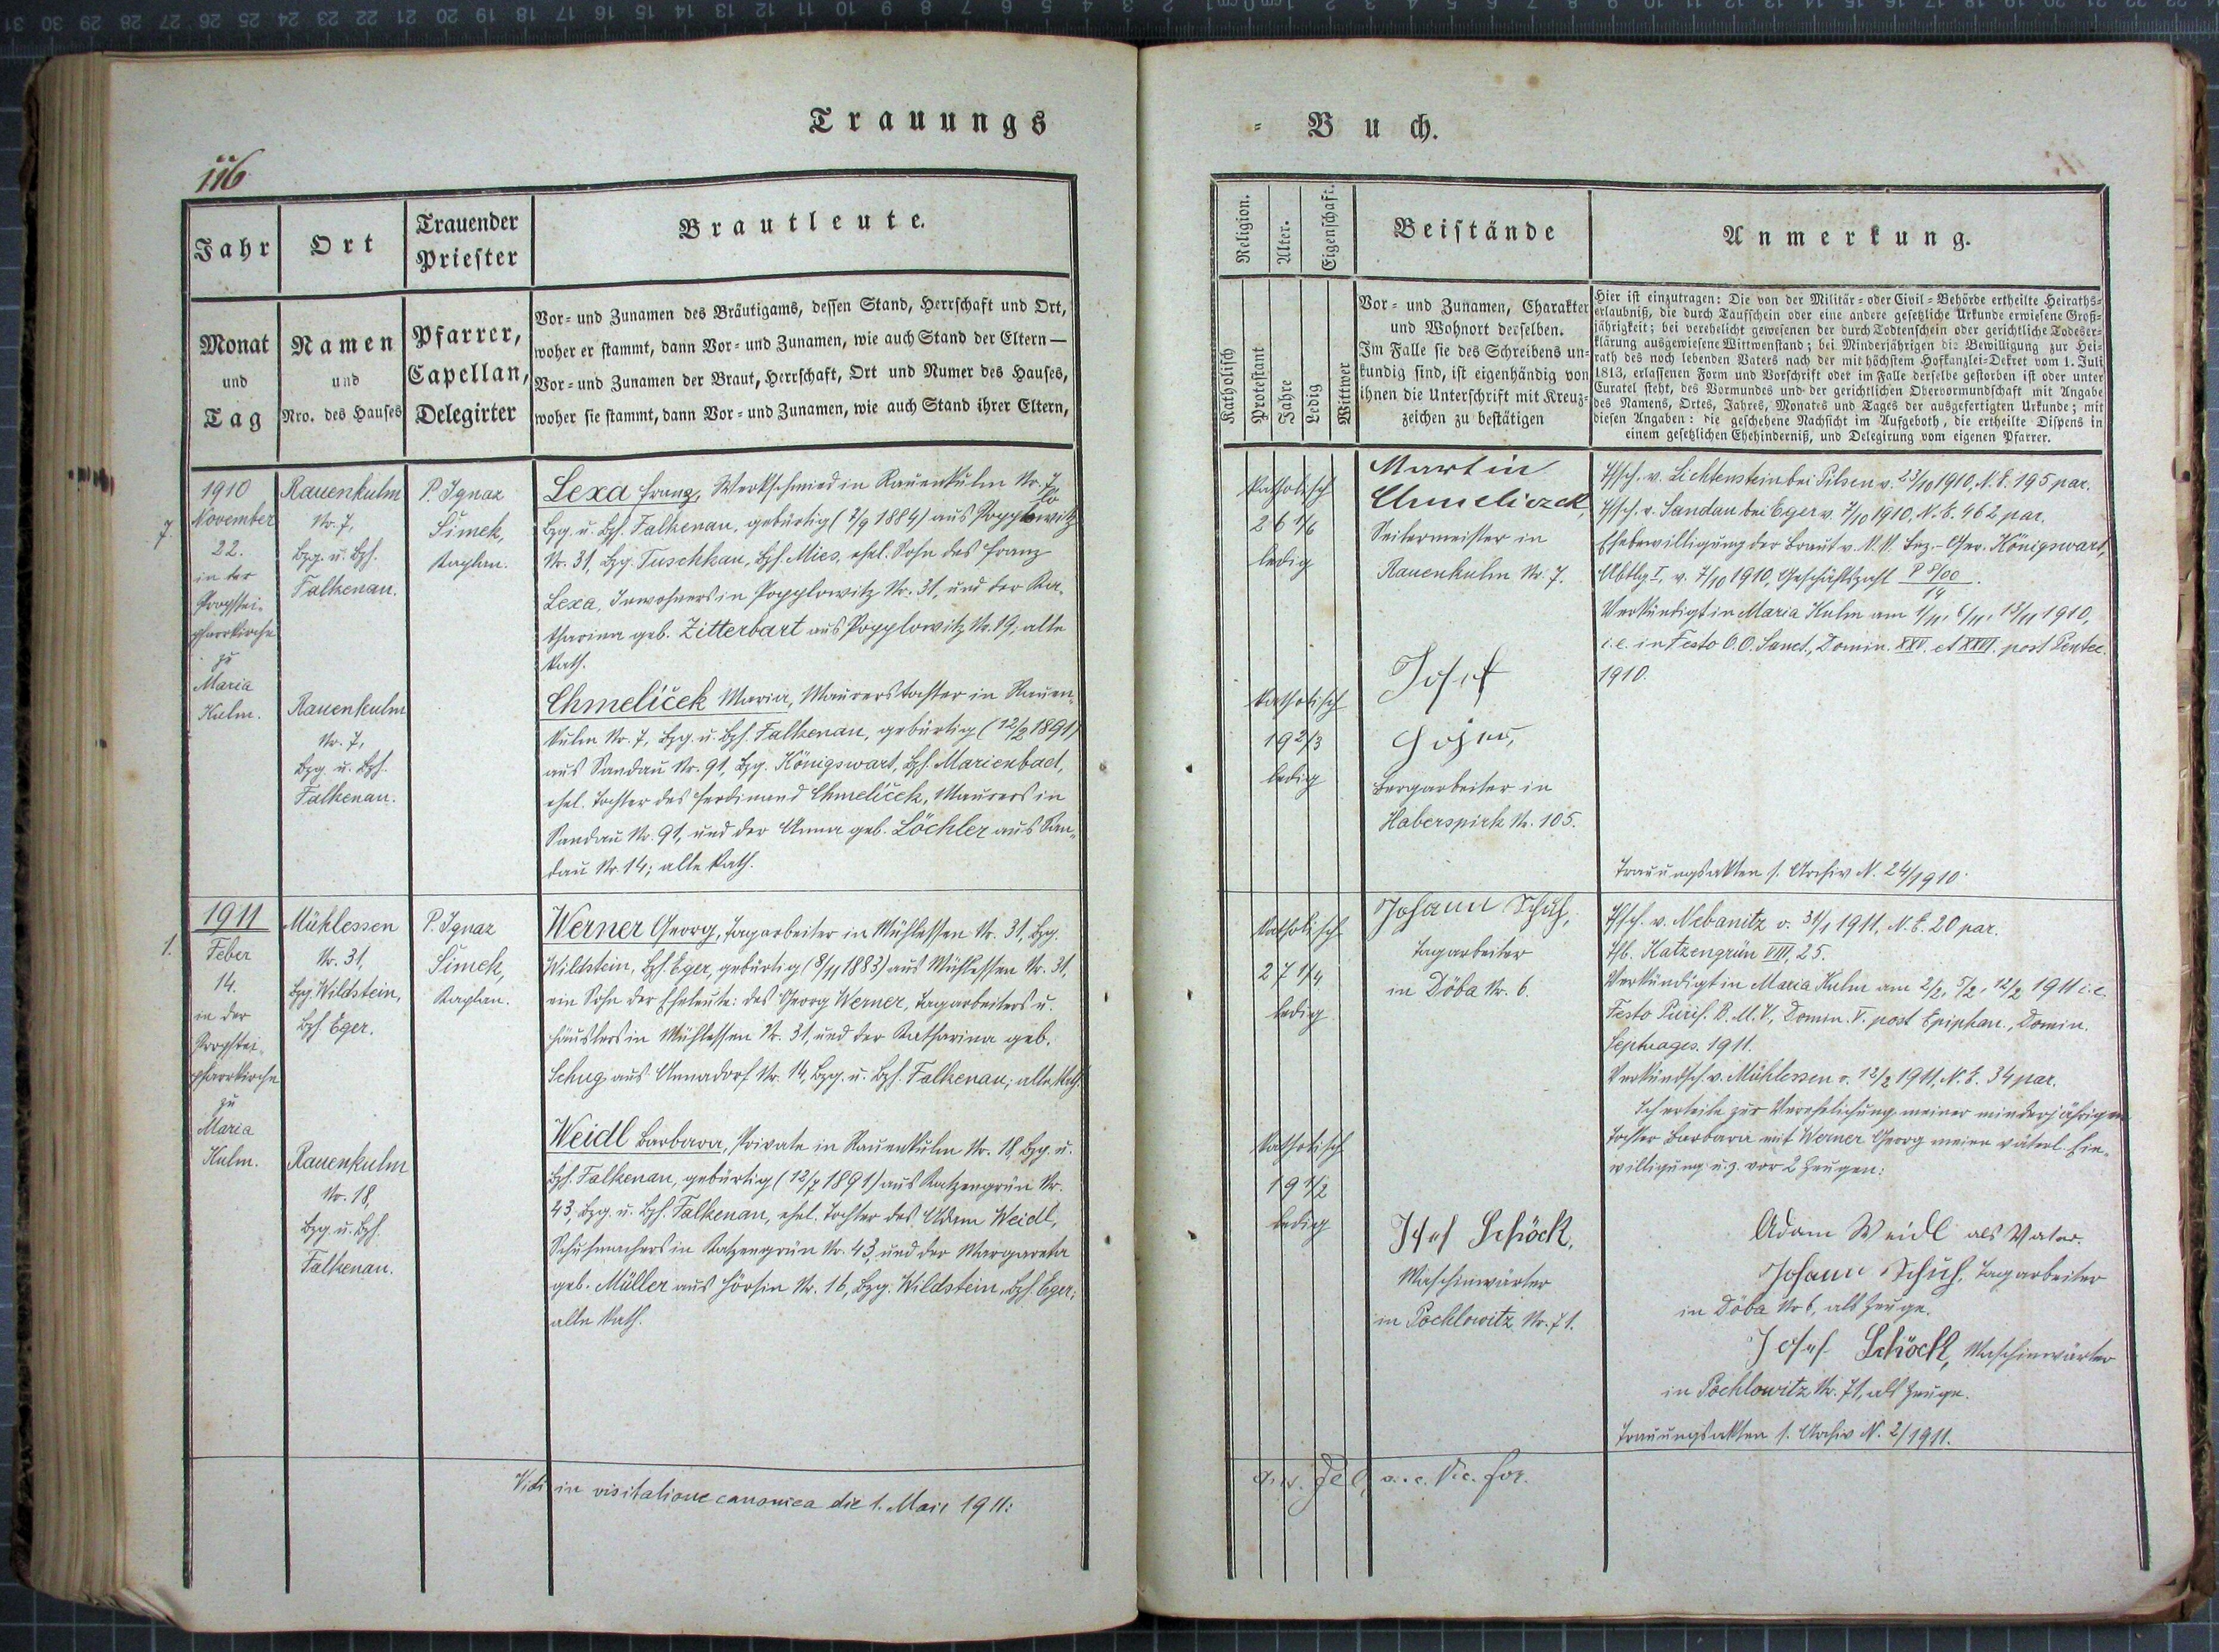 Trauungs
= Buch.
116
Jahr
Ort
Trauender
Priester
Brautleute.
Monat
und
Tag
Namen
und
Nro. des Hauses
Pfarrer,
Capellan,
Delegirter
Vor- und Zunamen des Bräutigams, dessen Stand, Herrschaft und Ort,
woher er stammt, dann Vor- und Zunamen, wie auch Stand der Eltern —
Vor- und Zunamen der Braut, Herrschaft, Ort und Numer des Hauses,
woher sie stammt, dann Vor- und Zunamen, wie auch Stand ihrer Eltern,
7.
1910
November
22.
in der
Propstei-
pfarrkirche
zu
Maria
Kulm.
Rauenkulm
Nr. 7,
Bzg. u. Bzh.
Falkenau.
Rauenkulm
Nr. 7,
Bzg. u. Bzh.
Falkenau.
P. Ignaz
Šimek,
Kaplan.
Lexa Franz, Werkschmied in Rauenkulm Nr. 7,
Bzg. u. Bzh. Falkenau, gebürtig (2/9 1884) aus Popplowitz
Nr. 31, Bzg. Tuschkau, Bzh. Mies, ehel. Sohn des Franz
Lexa, Inwohners in Popplowitz Nr. 31, und der Ka-
tharina geb. Zitterbart aus Popplowitz Nr. 19; alle
kath.
Chmelíček Maria, Maurerstochter in Rauen-
kulm Nr. 7, Bzg. u. Bzh. Falkenau, gebürtig (12/2 1891)
aus Sandau Nr. 91, Bzg. Königswart, Bzh. Marienbad,
ehel. Tochter des Ferdinand Chmelíček, Maurers in
Sandau Nr. 91, und der Anna geb. Löchler aus San-
dau Nr. 14; alle kath.
1.
1911
Feber
14.
in der
Propstei-
pfarrkirche
zu
Maria
Kulm.
Mühlessen
Nr. 31,
Bzg. Wildstein,
Bzh. Eger.
Rauenkulm
Nr. 18,
Bzg. u. Bzh.
Falkenau.
P. Ignaz
Šimek,
Kaplan.
Werner Georg, Tagarbeiter in Mühlessen Nr. 31, Bzg.
Wildstein, Bzh. Eger, gebürtig (8/11 1883) aus Mühlessen Nr. 31,
ein Sohn der Eheleute: des Georg Werner, Tagarbeiters u.
Häuslers in Mühlessen Nr. 31, und der Katharina geb.
Schug aus Annadorf Nr. 14, Bzg. u. Bzh. Falkenau; alle kath.
Weidl Barbara, Private in Rauenkulm Nr. 18, Bzg. u.
Bzh. Falkenau, gebürtig (12/7 1891) aus Katzengrün Nr.
43, Bzg. u. Bzh. Falkenau, ehel. Tochter des Adam Weidl,
Schuhmachers in Katzengrün Nr. 43, und der Margareta
geb. Müller aus Hörsin Nr. 16, Bzg. Wildstein, Bzh. Eger;
alle kath.
Vidi in visitatione canonica die 1. Maii 1911:
Religion.
Alter.
Eigenschaft.
Beistände
Anmerkung.
Katholisch
Protestant
Jahre
Ledig
Wittwer
Vor- und Zunamen, Charakter
und Wohnort derselben.
Im Falle sie des Schreibens un-
kundig sind, ist eigenhändig von
ihnen die Unterschrift mit Kreuz-
zeichen zu bestätigen
Hier ist einzutragen: Die von der Militär- oder Civil-Behörde ertheilte Heiraths-
erlaubniß, die durch Taufschein oder eine andere gesetzliche Urkunde erwiesene Groß-
jährigkeit; bei verehelicht gewesenen der durch Todtenschein oder gerichtliche Todeser-
klärung ausgewiesene Wittwenstand; bei Minderjährigen die Bewilligung zur Hei-
rath des noch lebenden Vaters nach der mit höchstem Hofkanzlei-Dekret vom 1. Juli
1813, erlassenen Form und Vorschrift oder im Falle derselbe gestorben ist oder unter
Curatel steht, des Vormundes und der gerichtlichen Obervormundschaft mit Angabe
des Namens, Ortes, Jahres, Monates und Tages der ausgefertigten Urkunde; mit
diesen Angaben: die geschehene Nachsicht im Aufgeboth, die ertheilte Dispens in
einem gesetzlichen Ehehinderniß, und Delegirung vom eigenen Pfarrer.
katholisch
26 1/6
ledig
katholisch
19 2/3
ledig
Martin
Chmeliczek,
Seilermeister in
Rauenkulm Nr. 7.
Josef
Bergarbeiter in
Haberspirk Nr. 105.
Tfsch. v. Lichtenstein bei Pilsen v. 23/10 1910, N. E. 195 par.
Tfsch. v. Sandau bei Eger v. 7/10 1910, N. E. 462 par.
Ehebewilligung der Braut v. K. K. Bez.-Ger. Königswart,
Abtlg. I, v. 7/10 1910, Geschäftszahl
Verkündigt in Maria Kulm am 1/11, 6/11, 13/11 1910,
i. e. in Festo O.O. Sanct., Domin. XXV. et XXVI. post Pentec.
1910.
Trauungsakten s. Archiv N. 24/1910.
katholisch
27 1/4
ledig
katholisch
19 1/2
ledig
Johann Schuh,
Tagarbeiter
in Döba Nr. 6.
Josef Schöck,
Maschinwärter
in Pochlowitz Nr. 71.
Tfsch. v. Nebanitz v. 31/1 1911, N. E. 20 par.
Tfb. Katzengrün VIII, 25.
Verkündigt in Maria Kulm am 2/2, 5/2, 12/2 1911 i. e.
Festo Purif. B. M. V., Domin. V. post Epiphan., Domin.
Septuages. 1911.
Verkündsch. v. Mühlessen v. 12/2 1911, N. E. 34 par.
Ich erteile zur Verehelichung meiner minderjährigen
Tochter Barbara mit Werner Georg meine väterl. Ein-
willigung u. z. vor 2 Zeugen:
Adam Weidl als Vater.
Johann Schuh, Tagarbeiter
in Döba Nr 6, als Zeuge.
Josef Schöck, Maschinwärter
in Pochlowitz Nr. 71, als Zeuge.
Trauungsakten s. Archiv N. 2/1911.